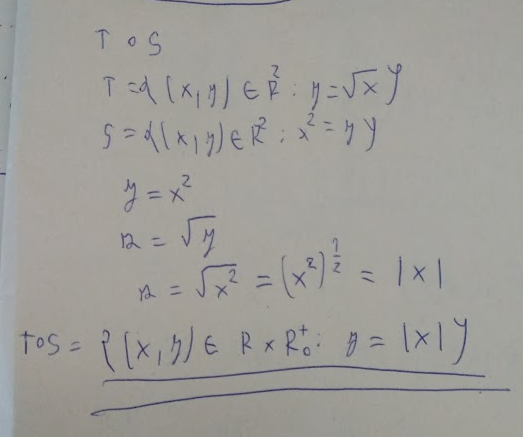 T ∘ S
T = {(x,y) ∈ R² : y = √x}
S = {(x,y) ∈ R² : x² = y}
y = x²
z = √y
z = √x² = (x²)^½ = |x|
T∘S = {(x,y) ∈ R × R₀⁺ : y = |x|}